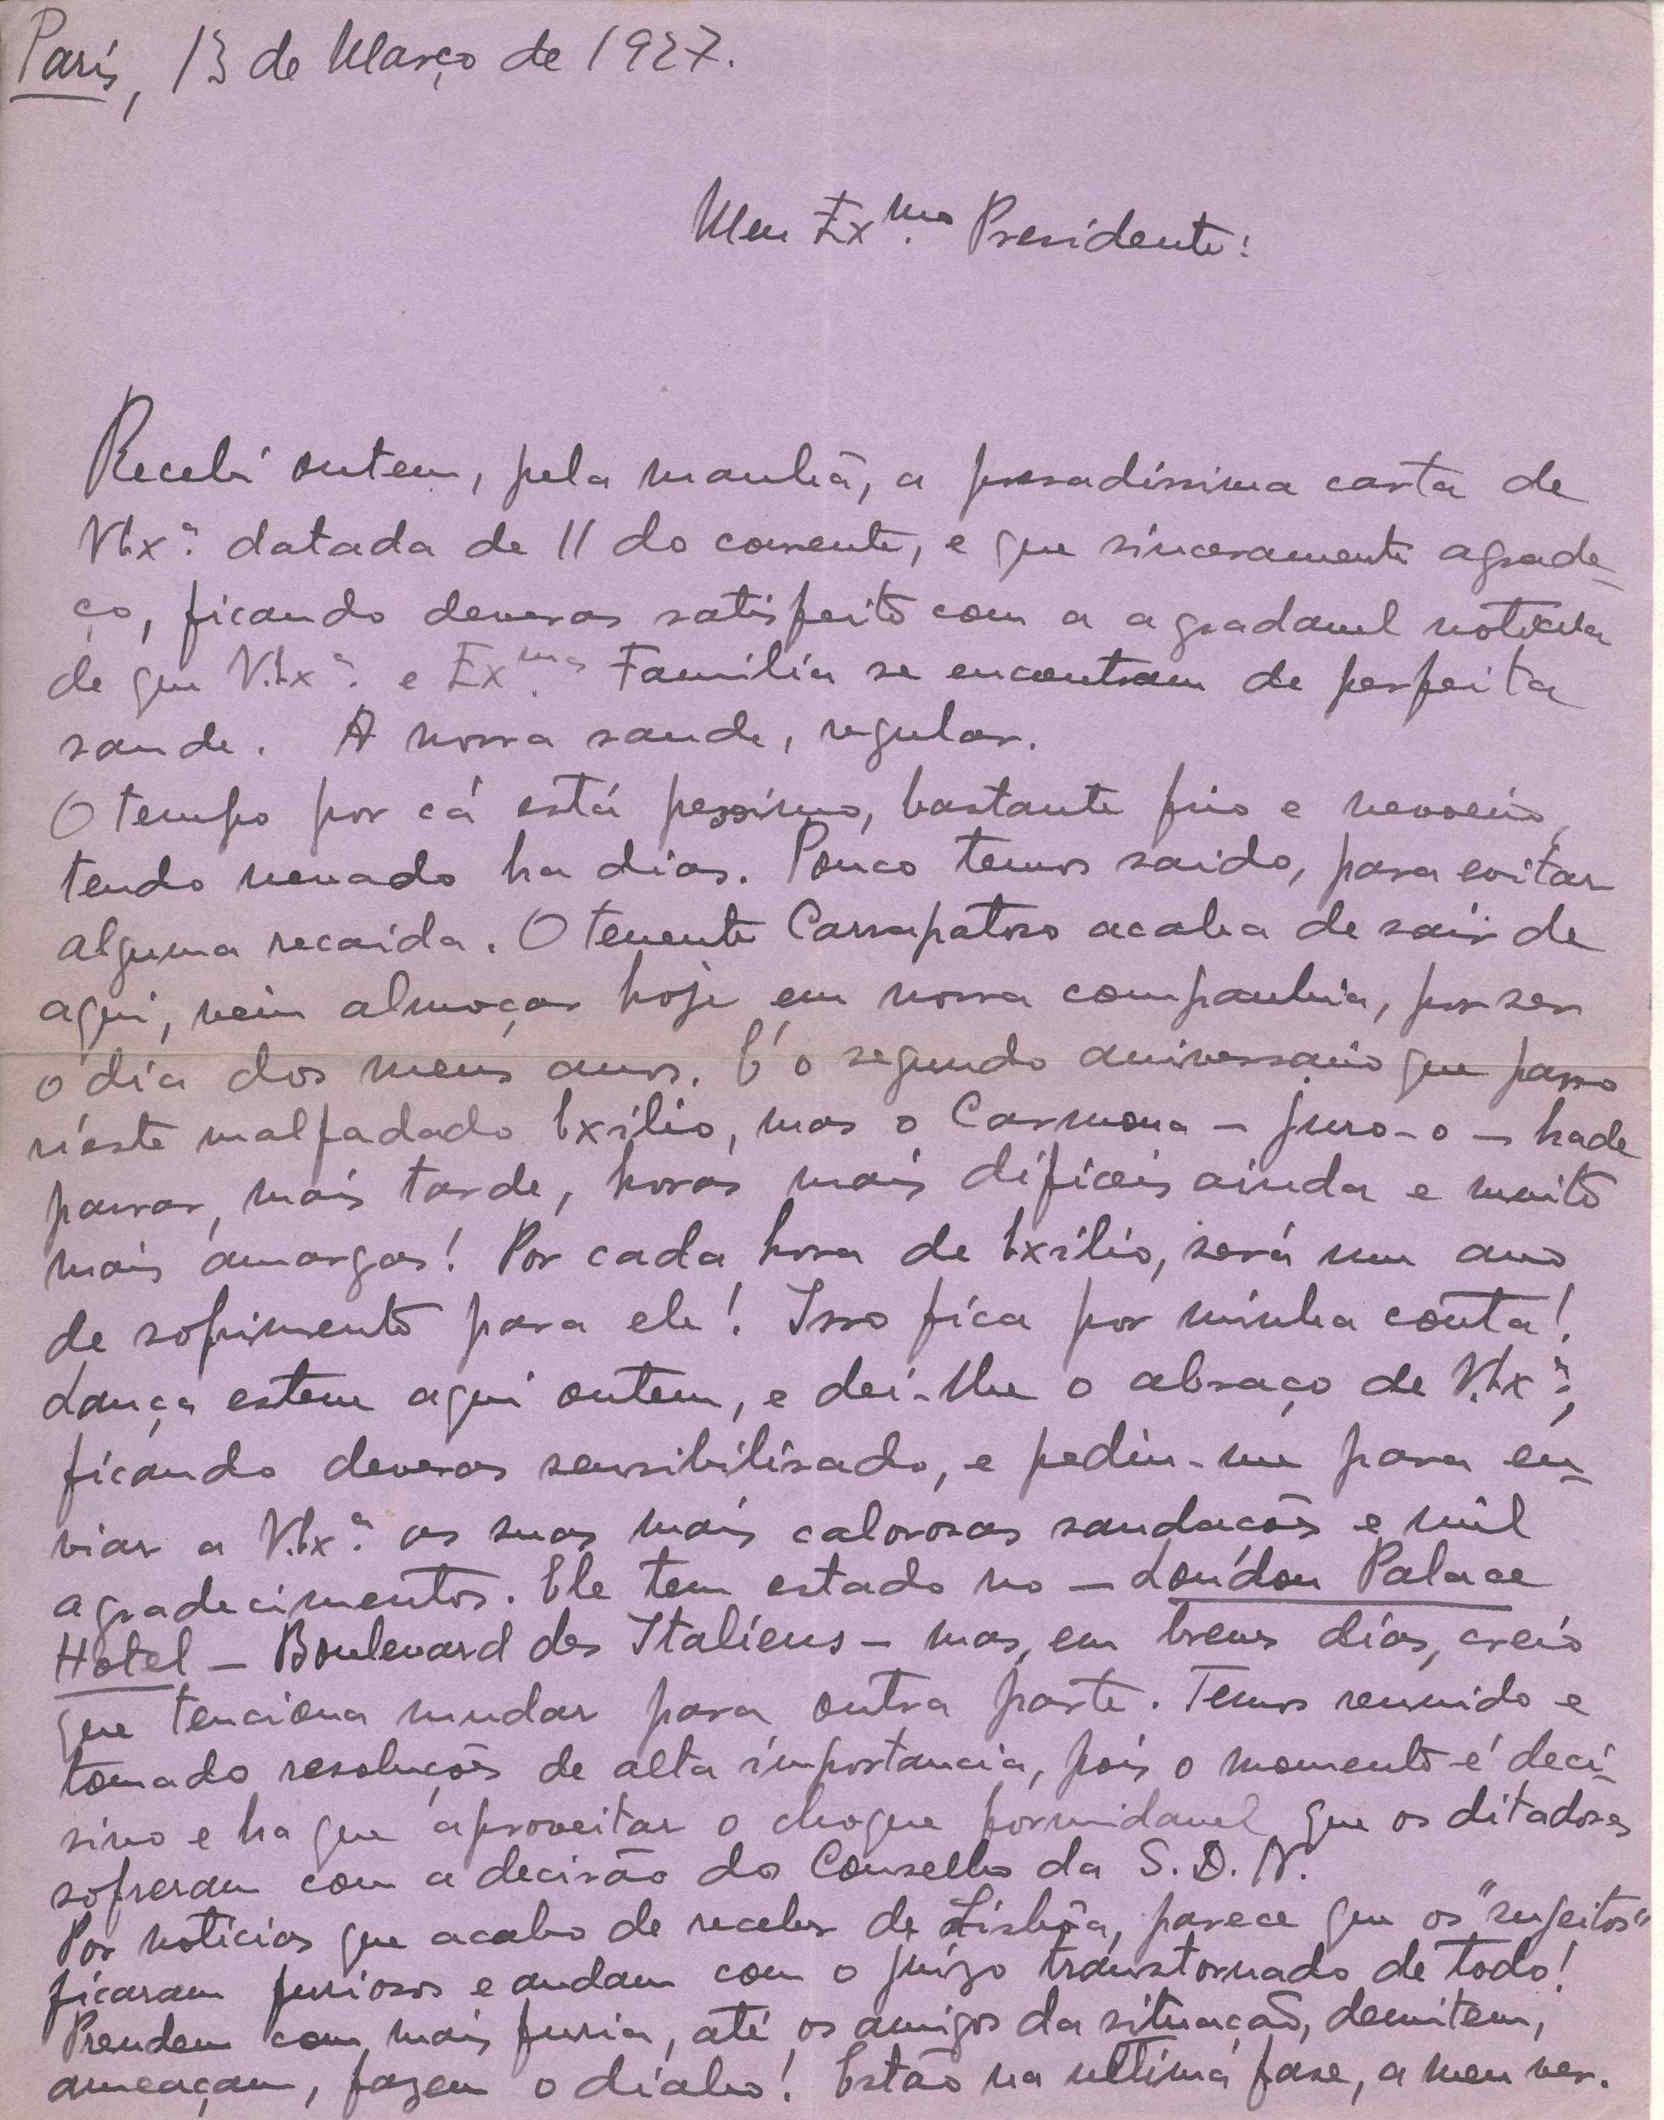 París, 13 de Março de 1927.
Meu Ex.mo Presidente:
Recebí ontem, pela manhã, a presadíssima carta de
V.Ex.ª datada de 11 do corrente, e que sinceramente agrade-
ço, ficando deveras satisfeito com a agradavel noticia
de que V.Ex.ª e Ex.ma Família se encontram de perfeita
saude. A nossa saude, regular.
O tempo por cá está pessimo, bastante frio e nevoeiro,
tendo nevado ha dias. Pouco temos saido, para evitar
alguma recaída. O tenente Carrapatoso acaba de saír de
aqui, veiu almoçar hoje em nossa companhia, por ser
o día dos meus anos. É o segundo aniversario que passo
n'este malfadado Exílio, mas o Carmona - juro-o - hade
passar, mais tarde, horas mais difíceis ainda e muito
mais amargas! Por cada hora de Exílio, será um ano
de sofrimento para ele! Isso fica por minha conta!
Lança esteve aqui ontem, e dei-lhe o abraço de V.Ex.ª,
ficando deveras sensibilisado, e pediu-me para en-
viar a V.Ex.ª as suas mais calorosas saudacões e mil
agradecimentos. Ele tem estado no - London Palace
Hotel - Boulevard des Italiens - mas, em breves días, creio
que tenciona mudar para outra parte. Temos reunido e
tomado resoluções de alta importancia, pois o momento é decí-
sivo e ha que aproveitar o choque formidavel que os ditadores
sofreram com a decisão do Conselho da S. D. N.
Por notícias que acabo de receber de Lisbôa, parece que os "sugeitos"
ficaram furiosos e andam com o juízo transtornado de todo!
Prendem com mais furia, até os amigos da situação, demitem,
ameaçam, fazem o díabo! Estão na ultíma fase, a meu ver.